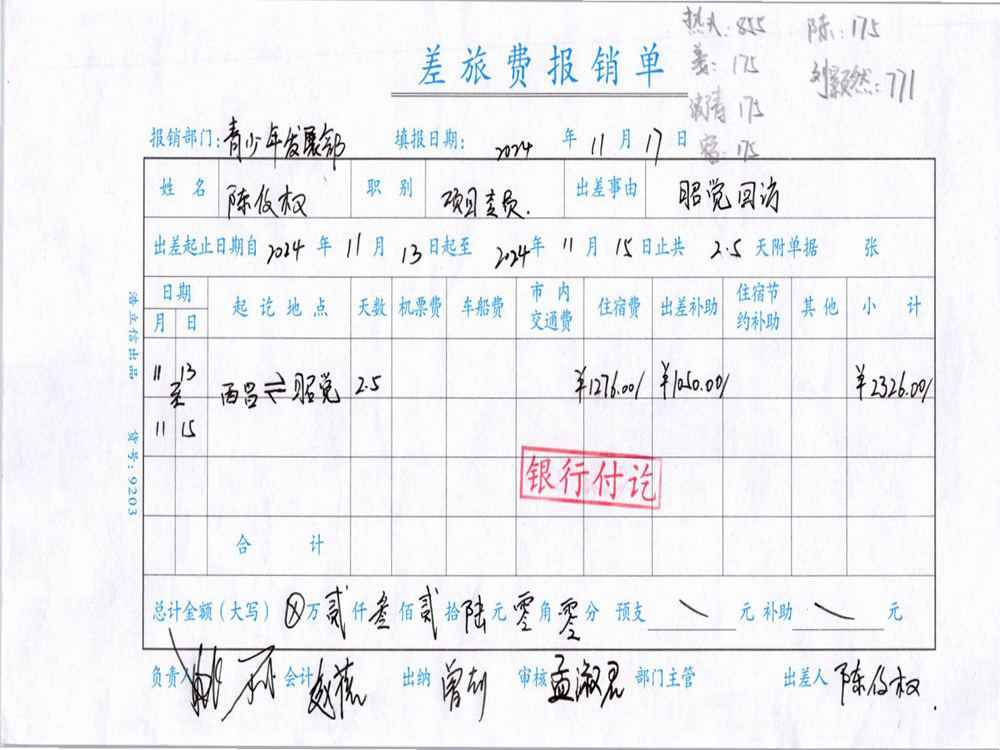 热火:855 陈:175
姜:175 刘颖然:771
175
175
差旅费报销单
报销部门:青少年发展部 填报日期: 2024 年 11 月 17 日
姓名 陈俊权 职别 项目专员. 出差事由 昭觉回访
出差起止日期自 2024 年 11 月 13 日起至 2024 年 11 月 15 日止共 2.5 天附单据 张
日期 起讫地点 天数 机票费 车船费 市内交通费 住宿费 出差补助 住宿节约补助 其他 小计
月 日
11 13 至 西昌⇌昭觉 2.5 ¥1276.00/ ¥1050.00/ ¥2326.00/
11 15
银行付讫
合计
总计金额(大写) ⊗万贰仟叁佰贰拾陆元零角零分 预支 元 补助 元
负责人 会计 出纳 曾 审核 孟淑君 部门主管 出差人 陈俊权.
货号:9203